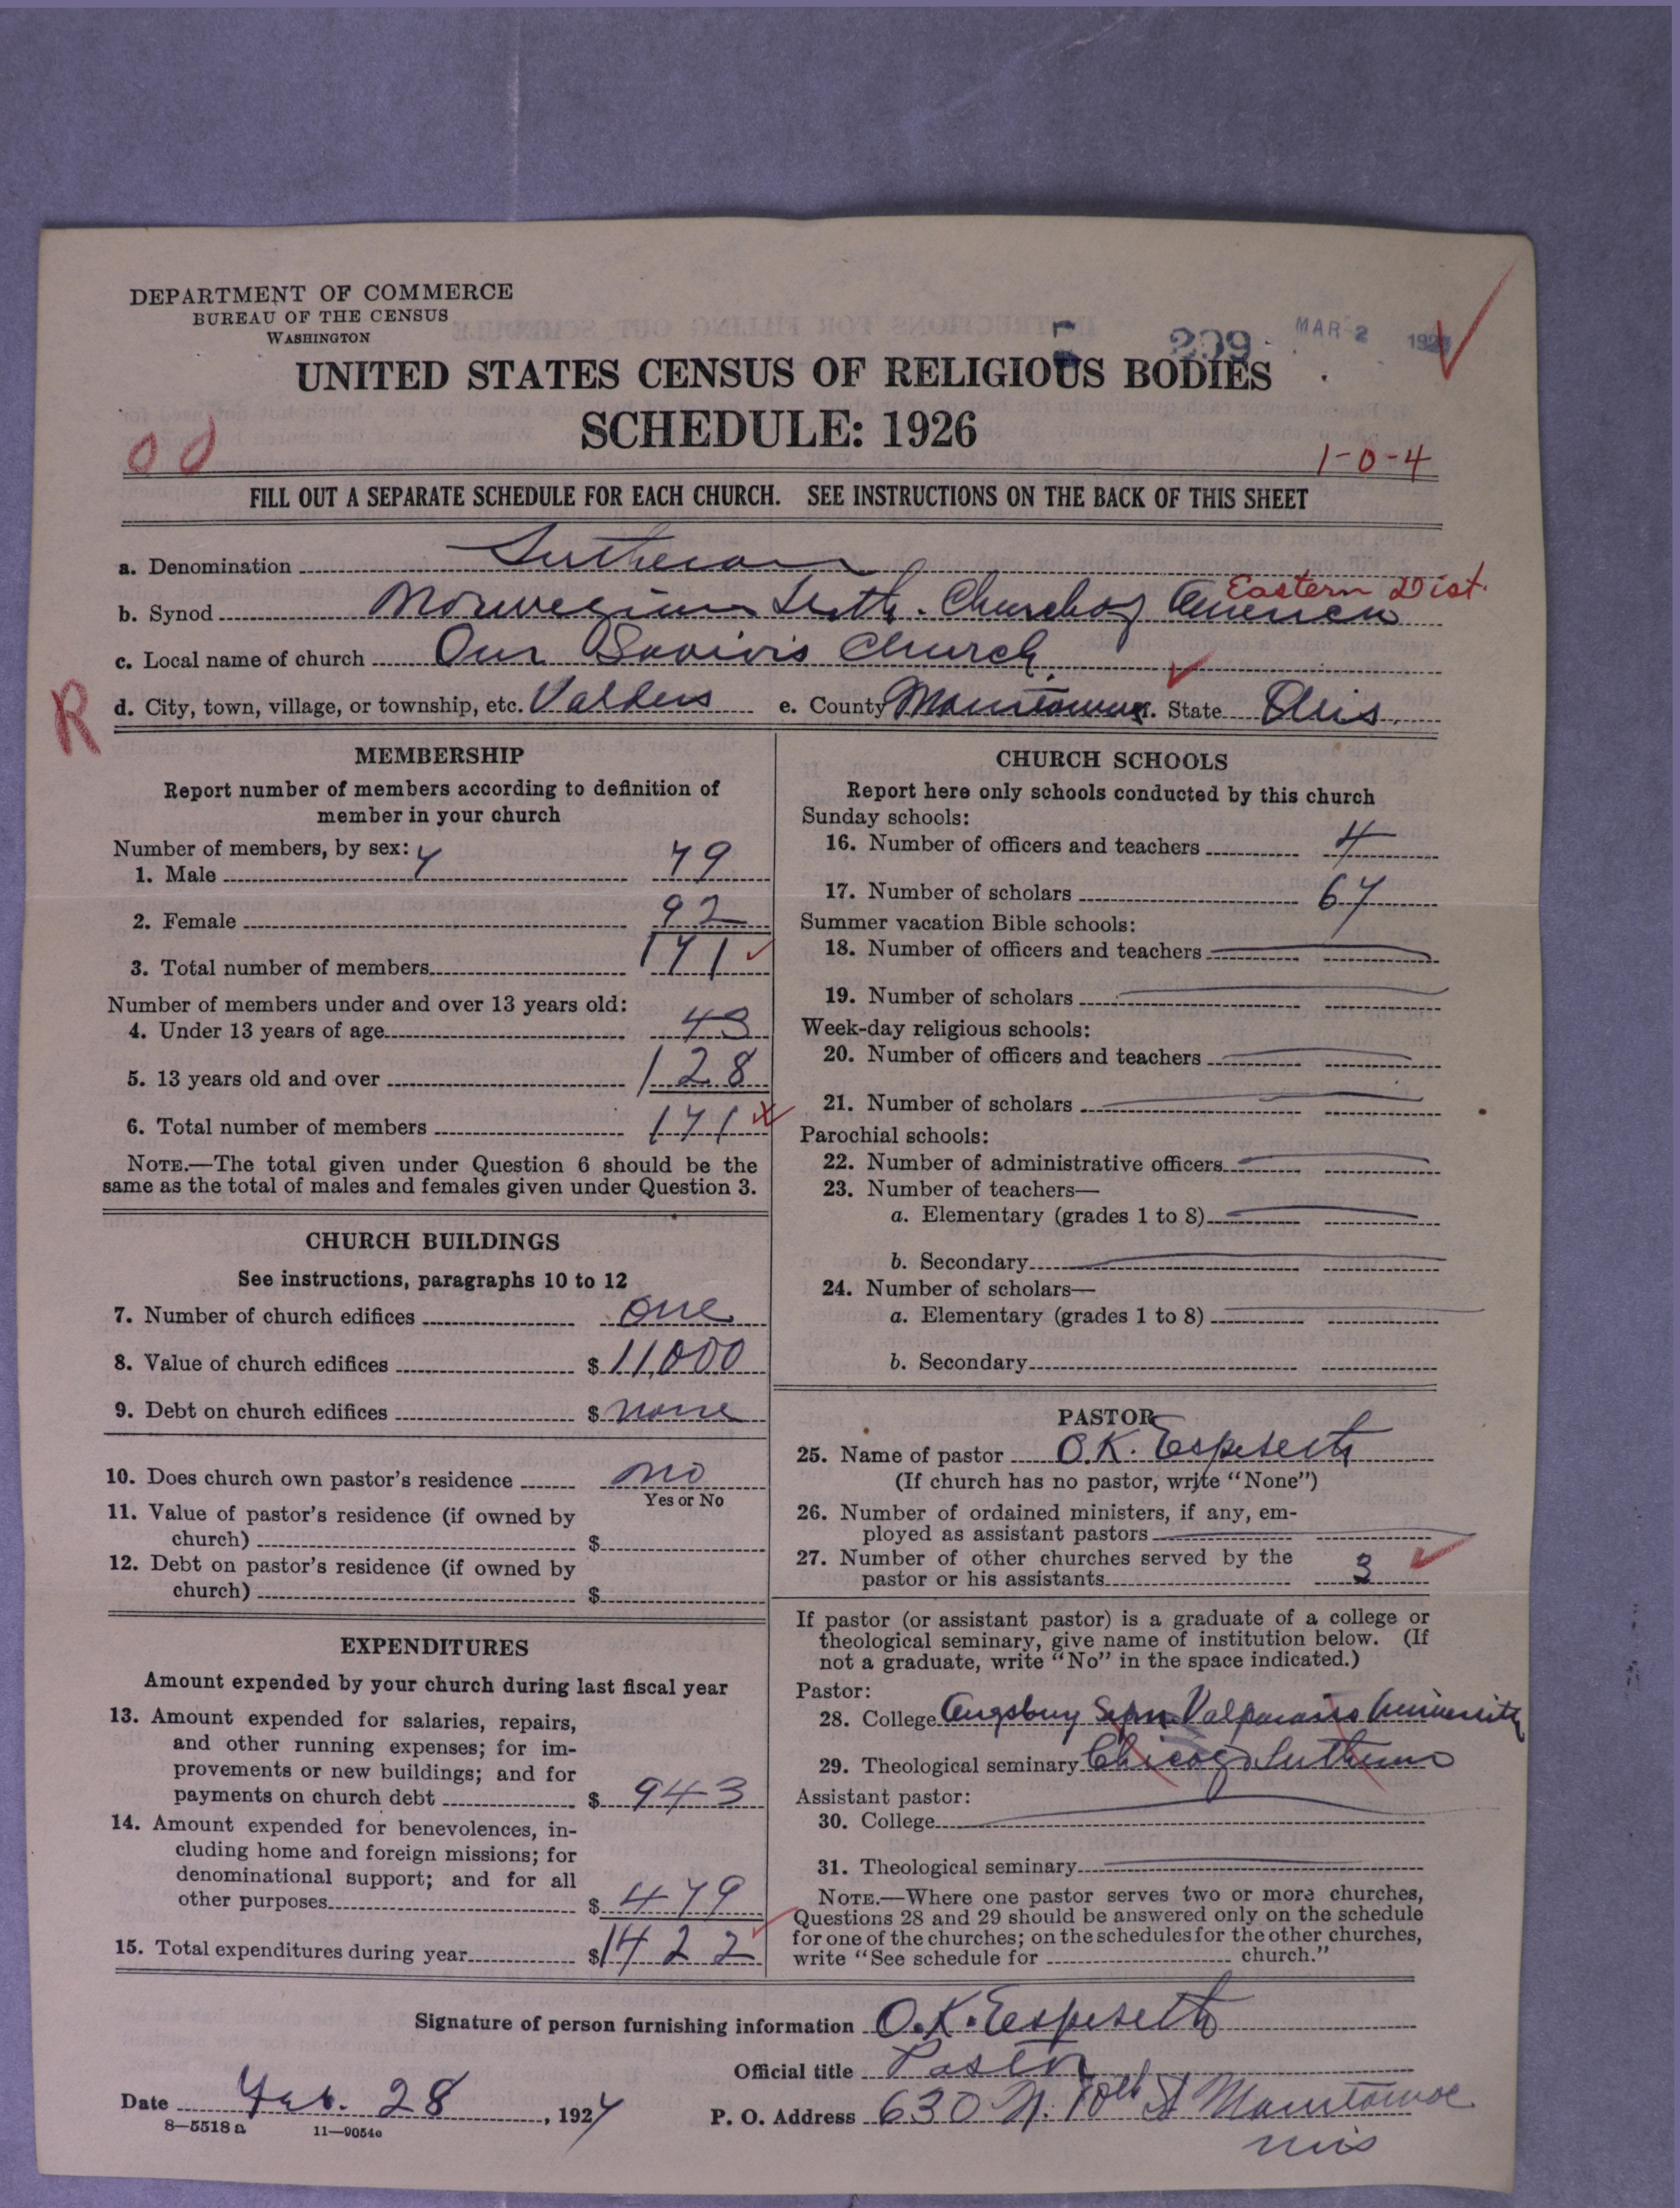 DEPARTMENT OF COMMERCE
BUREAU OF THE CENSUS
WASHINGTON
209
MAR 2 192
UNITED STATES CENSUS OF RELIGIOUS BODIES
SCHEDULE: 1926
1-0-4
FILL OUT A SEPARATE SCHEDULE FOR EACH CHURCH. SEE INSTRUCTIONS ON THE BACK OF THIS SHEET
a. Denomination Lutheran
Eastern Dist.
b. Synod Norwegian Luth. Church of America
c. Local name of church Our Savior's Church
R
d. City, town, village, or township, etc. Valders e. County Manitowoc f. State Wis.
MEMBERSHIP
Report number of members according to definition of
member in your church
Number of members, by sex:
1. Male 79
2. Female 92
3. Total number of members 171
Number of members under and over 13 years old:
4. Under 13 years of age 43
5. 13 years old and over 128
6. Total number of members 171
NOTE.—The total given under Question 6 should be the
same as the total of males and females given under Question 3.
CHURCH BUILDINGS
See instructions, paragraphs 10 to 12
7. Number of church edifices one
8. Value of church edifices $ 11,000
9. Debt on church edifices $ none
10. Does church own pastor's residence no
Yes or No
11. Value of pastor's residence (if owned by
church) $
12. Debt on pastor's residence (if owned by
church) $
EXPENDITURES
Amount expended by your church during last fiscal year
13. Amount expended for salaries, repairs,
and other running expenses; for im-
provements or new buildings; and for
payments on church debt $ 943
14. Amount expended for benevolences, in-
cluding home and foreign missions; for
denominational support; and for all
other purposes $ 479
15. Total expenditures during year $ 1422
CHURCH SCHOOLS
Report here only schools conducted by this church
Sunday schools:
16. Number of officers and teachers 4
17. Number of scholars 67
Summer vacation Bible schools:
18. Number of officers and teachers
19. Number of scholars
Week-day religious schools:
20. Number of officers and teachers
21. Number of scholars
Parochial schools:
22. Number of administrative officers
23. Number of teachers—
a. Elementary (grades 1 to 8)
b. Secondary
24. Number of scholars—
a. Elementary (grades 1 to 8)
b. Secondary
PASTOR
25. Name of pastor O.K. Espeseth
(If church has no pastor, write "None")
26. Number of ordained ministers, if any, em-
ployed as assistant pastors
27. Number of other churches served by the
pastor or his assistants 3
If pastor (or assistant pastor) is a graduate of a college or
theological seminary, give name of institution below. (If
not a graduate, write "No" in the space indicated.)
Pastor:
28. College Augsburg Sem Valparaiso University
29. Theological seminary Chicago Lutheran
Assistant pastor:
30. College
31. Theological seminary
NOTE.—Where one pastor serves two or more churches,
Questions 28 and 29 should be answered only on the schedule
for one of the churches; on the schedules for the other churches,
write "See schedule for church."
Signature of person furnishing information O.K. Espeseth
Official title Pastor
Date Feb. 28, 1927
P. O. Address 630 N. 10th St Manitowoc
Wis
8—5518 a 11—9054e